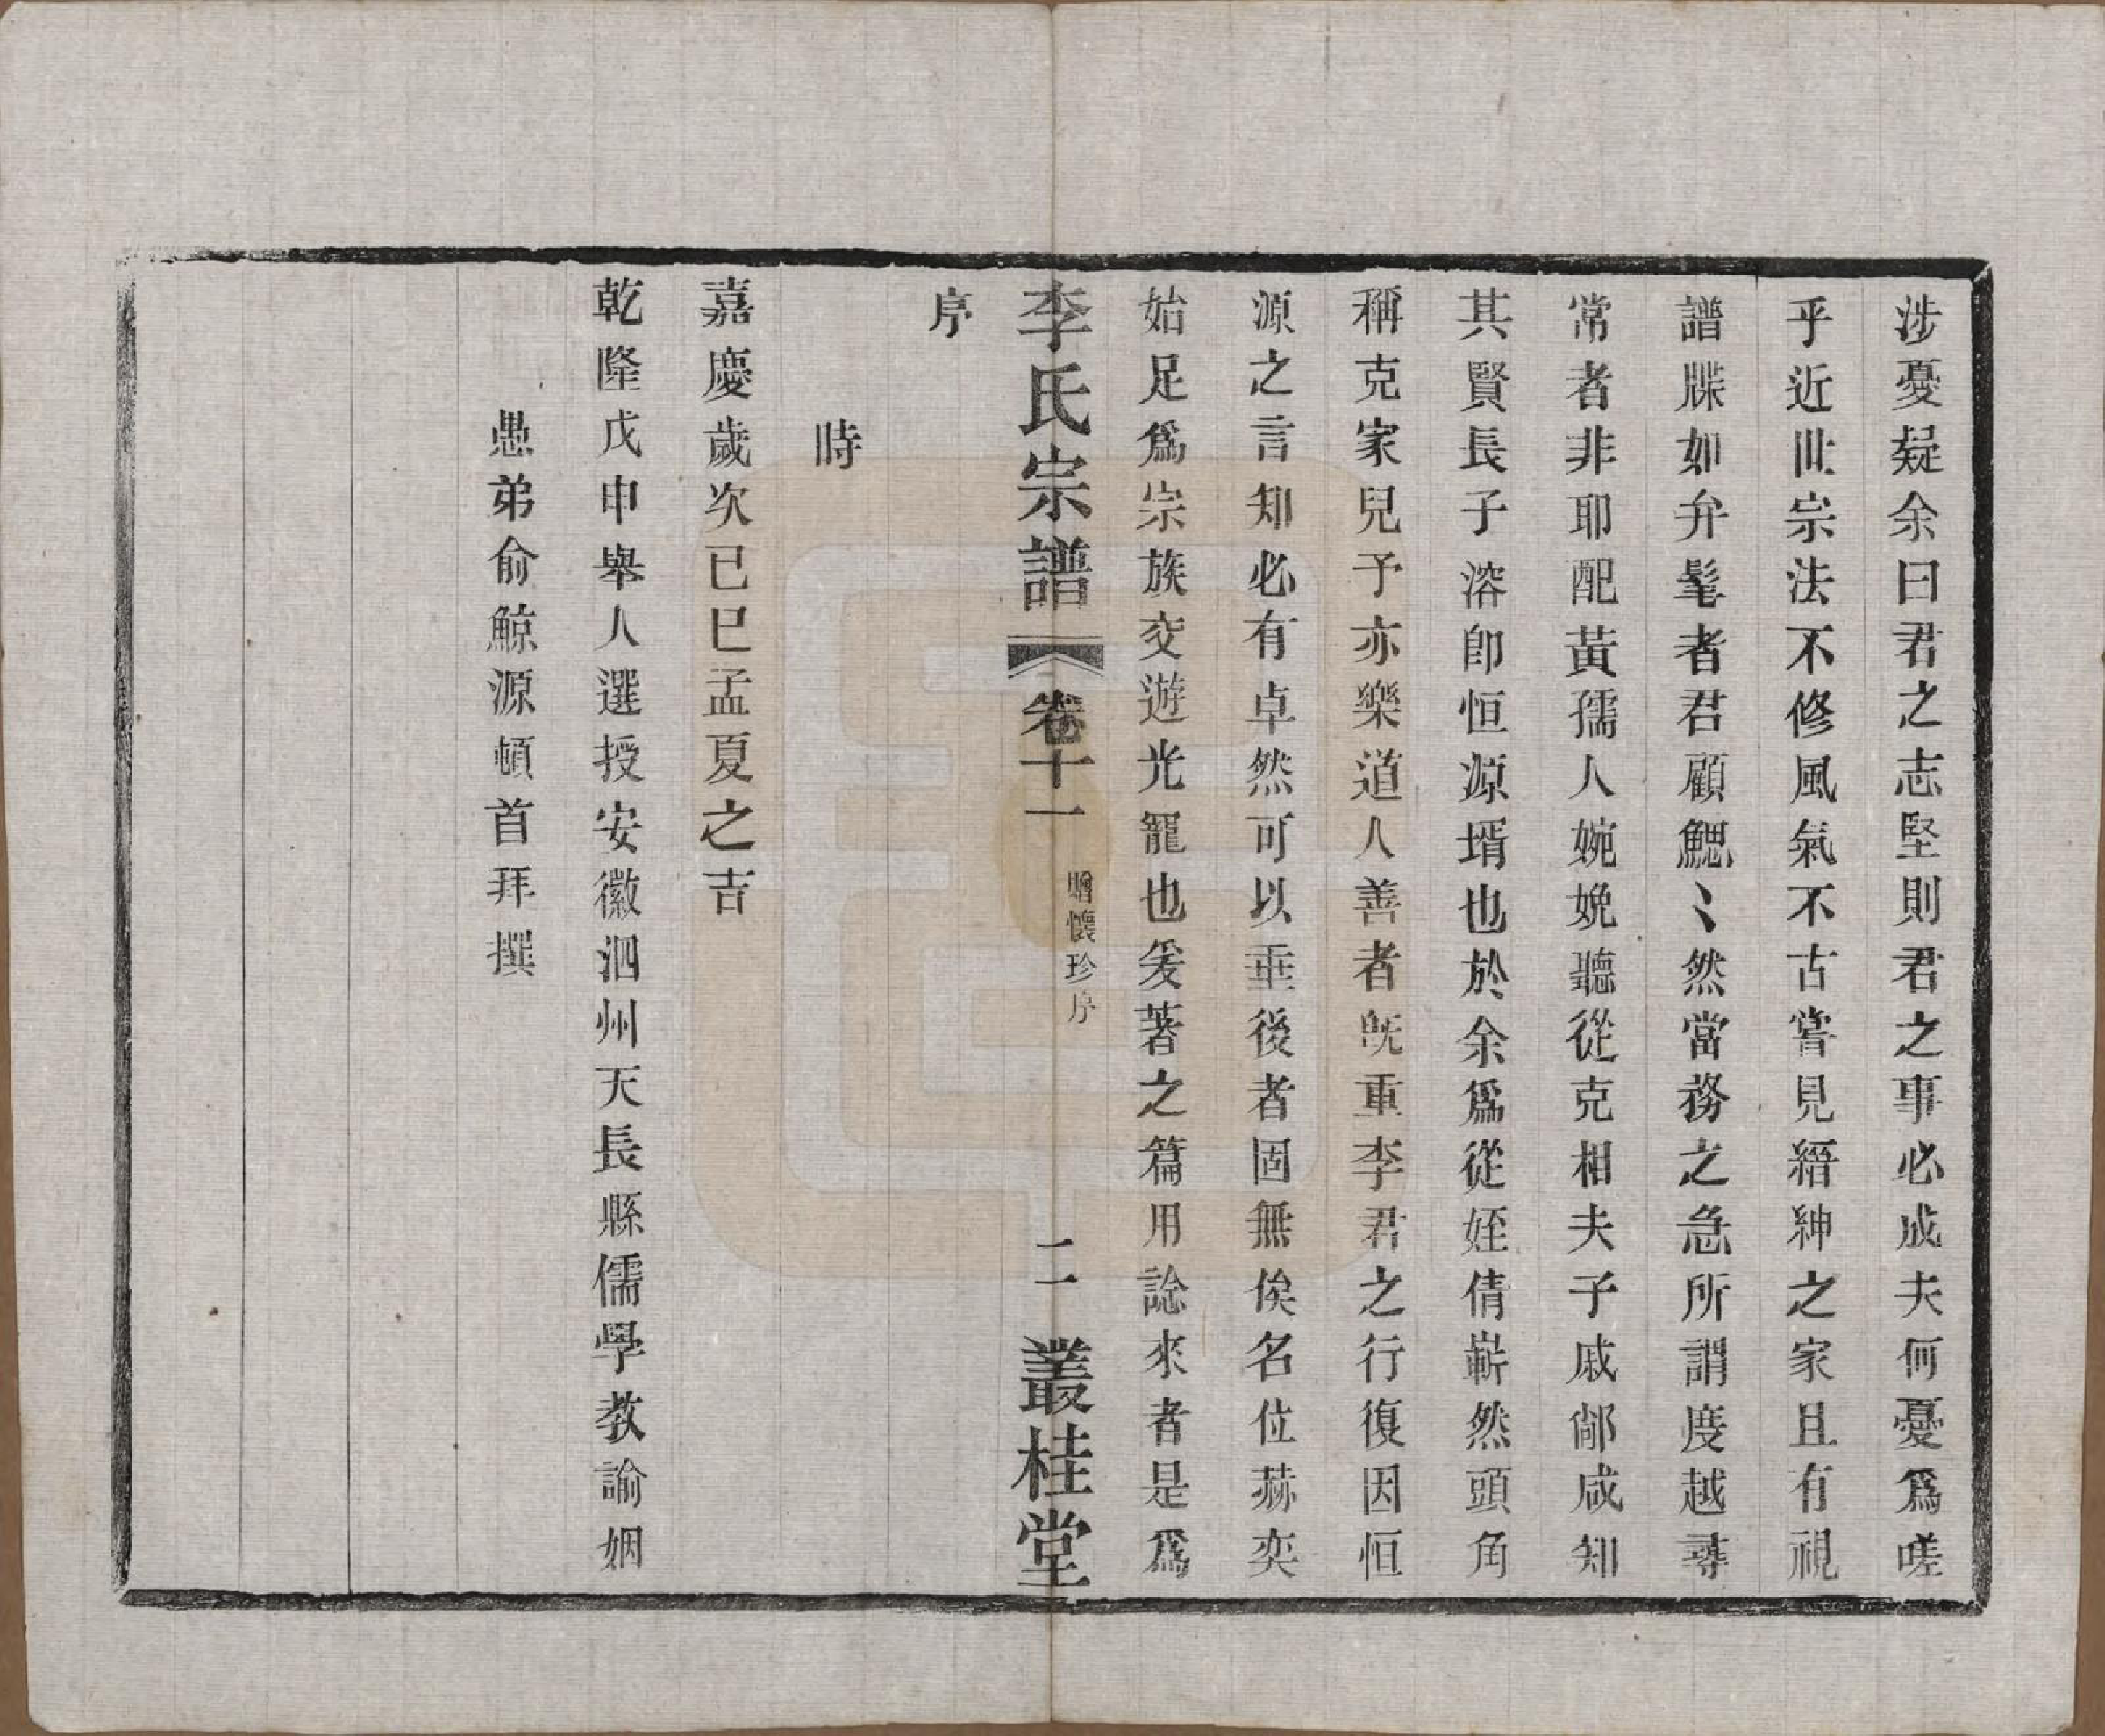 涉憂疑余曰君之志堅則君之事必成夫何憂爲嗟
乎近世宗法不修風氣不古嘗見縉紳之家且有視
譜牒如弁髦者君顧鰓〻然當務之急所謂度越尋
常者非耶配黃孺人婉娩聽從克相夫子戚鄰咸知
其賢長子溶卽恒源壻也於余爲從姪倩嶄然頭角
稱克家兒予亦樂道人善者旣重李君之行復因恒
源之言知必有卓然可以垂後者固無俟名位赫奕
始足爲宗族交遊光寵也爰著之篇用諗來者是爲
李氏宗譜 卷十一 贈懷珍序 二 叢桂堂
序
時
嘉慶歲次已巳孟夏之吉
乾隆戊申舉人選授安徽泗州天長縣儒學教諭姻
愚弟俞鯨源頓首拜撰